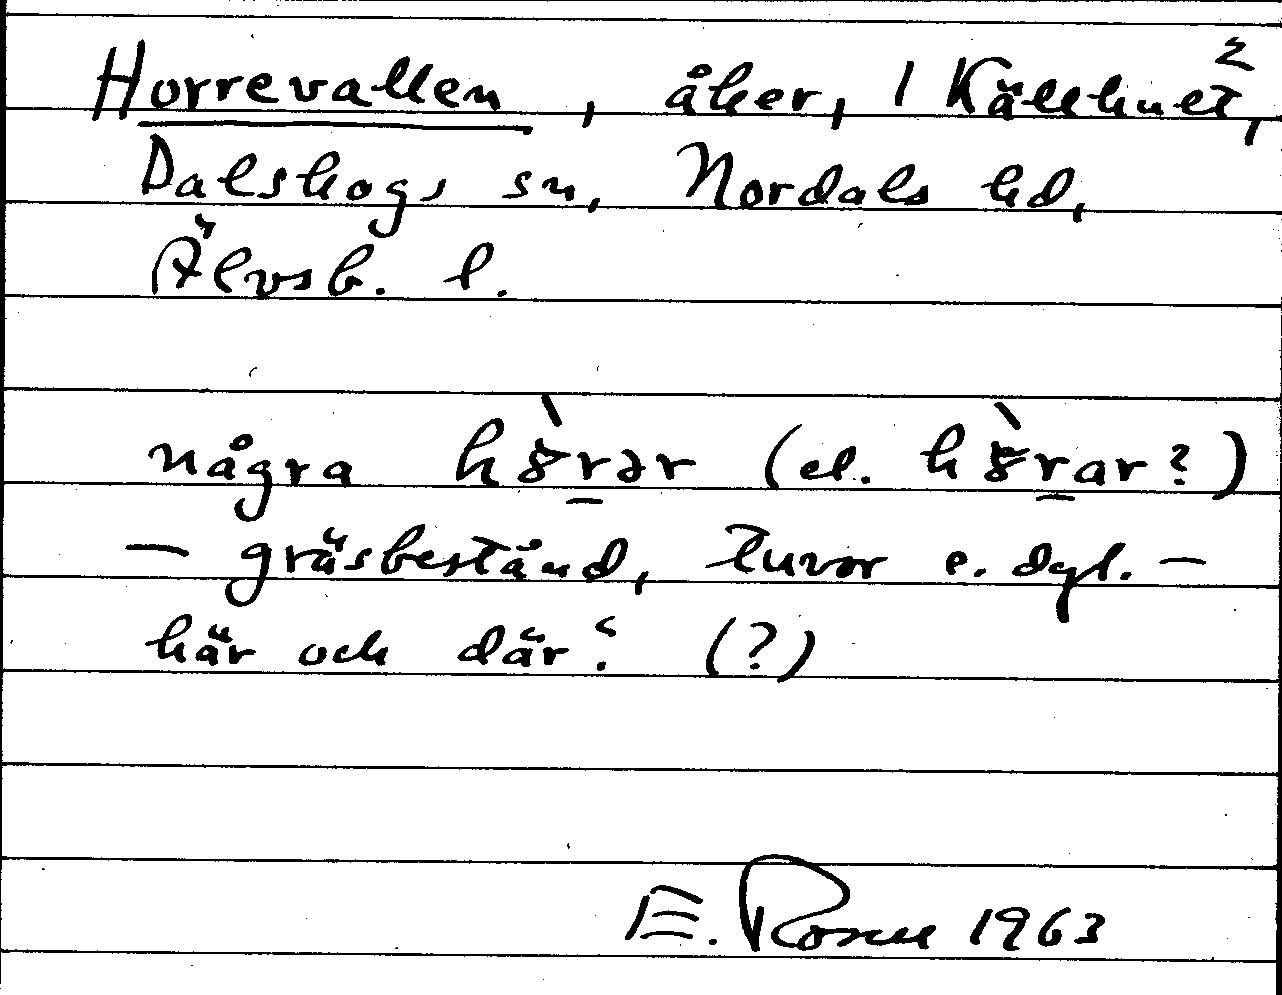 Horrevallen, åker, 1 Källhult²,
Dalskogs sn, Nordals hd,
Älvsb. l.
några hɞ̀r̲ər (el. hɞ̀r̲ar?)
— gräsbestånd, tuvor e. dyl. —
här och där. (?)
E. 1963